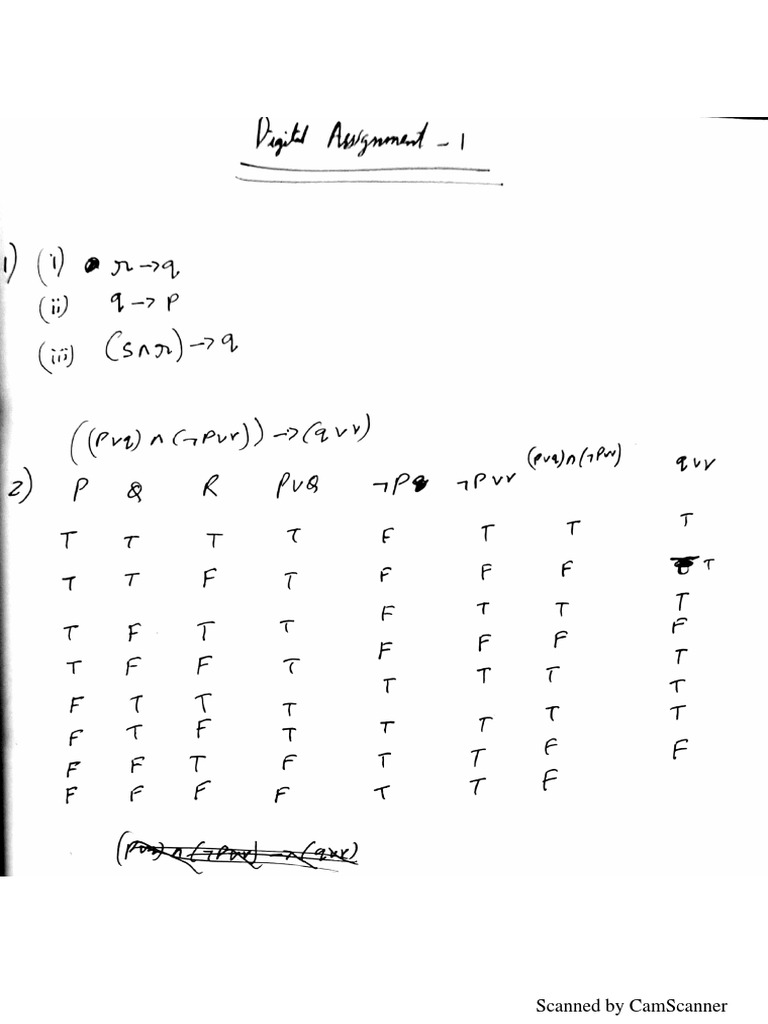 Digital Assignment - 1
1) (i) r→q
(ii) q→p
(iii) (s∧r)→q
((p∨q)∧(¬p∨r))→(q∨r)
2) P Q R P∨Q ¬P ¬P∨r (p∨q)∧(¬p∨r) q∨r
T T T T F T T T
T T F T F F F T
T F T T F T T T
T F F T F F F F
F T T T T T T T
F T F T T T T T
F F T F T T F T
F F F F T T F F
(p∨q)∧(¬p∨r)→(q∨r)
Scanned by CamScanner